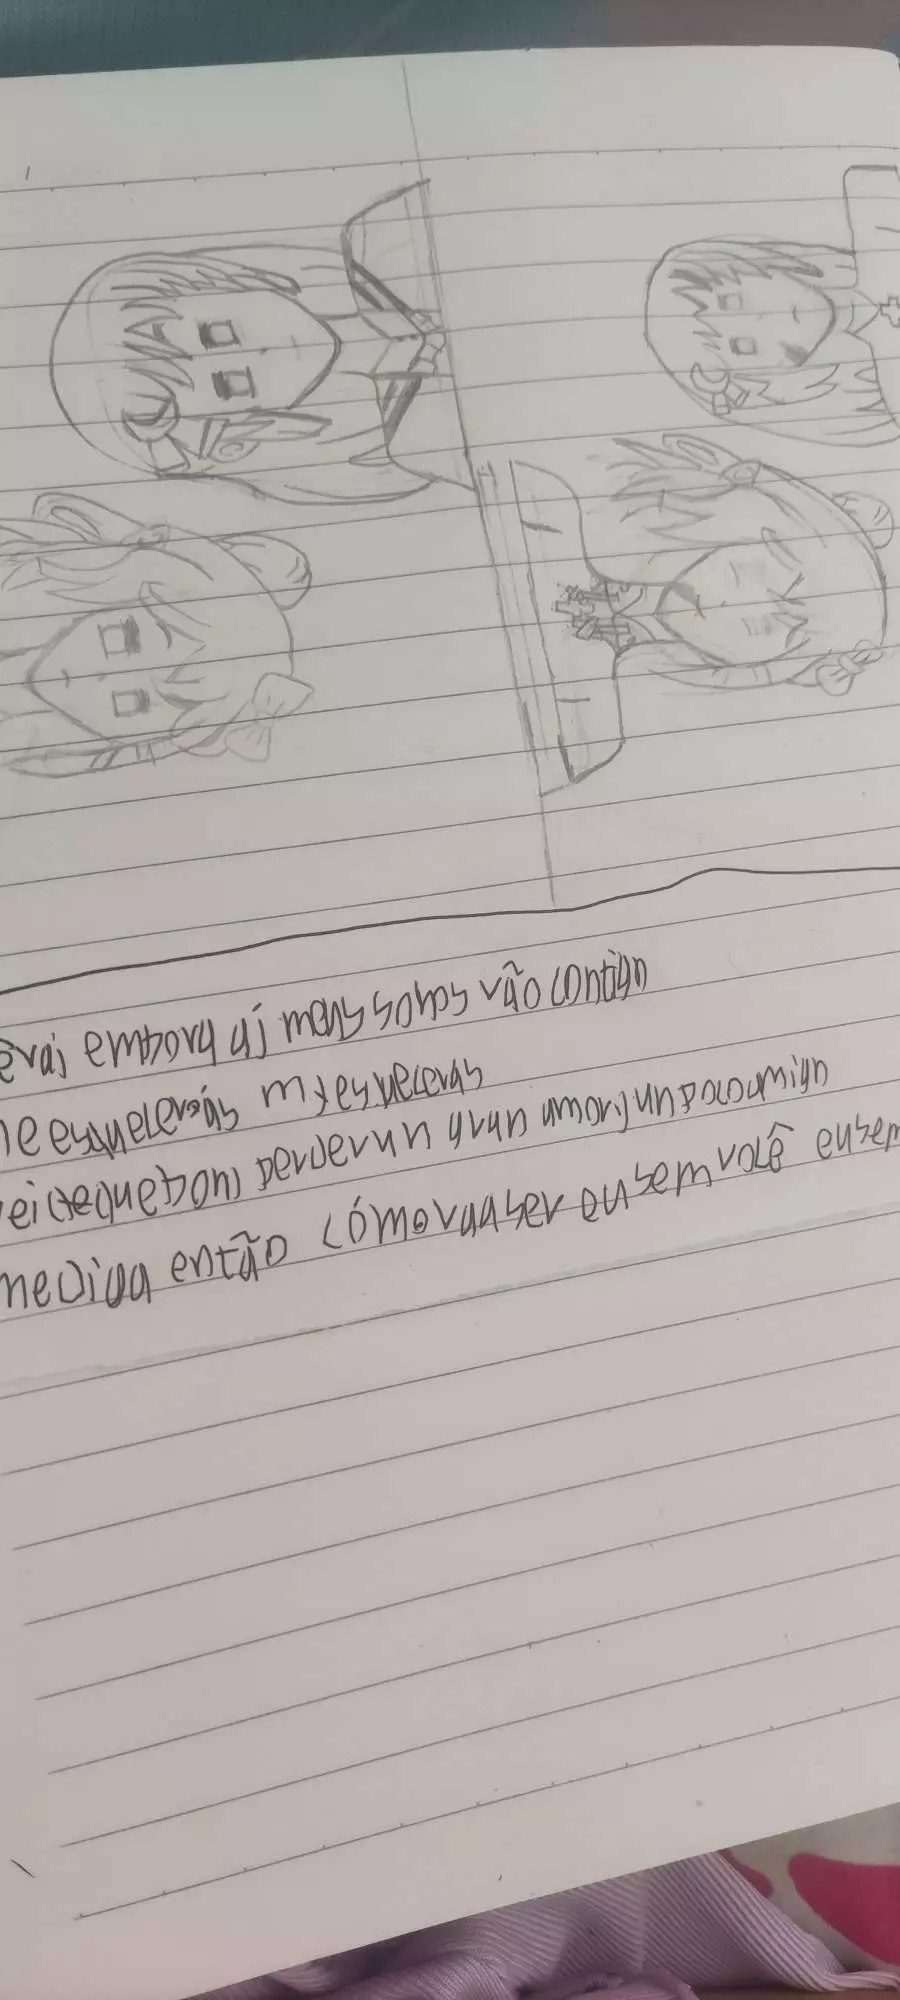 evai embora aj meus sonos vão contign
e esquecerás m esquecerás
perderun gran amor j un poco
me diga então cómo vaa ser eu sem você eu sem